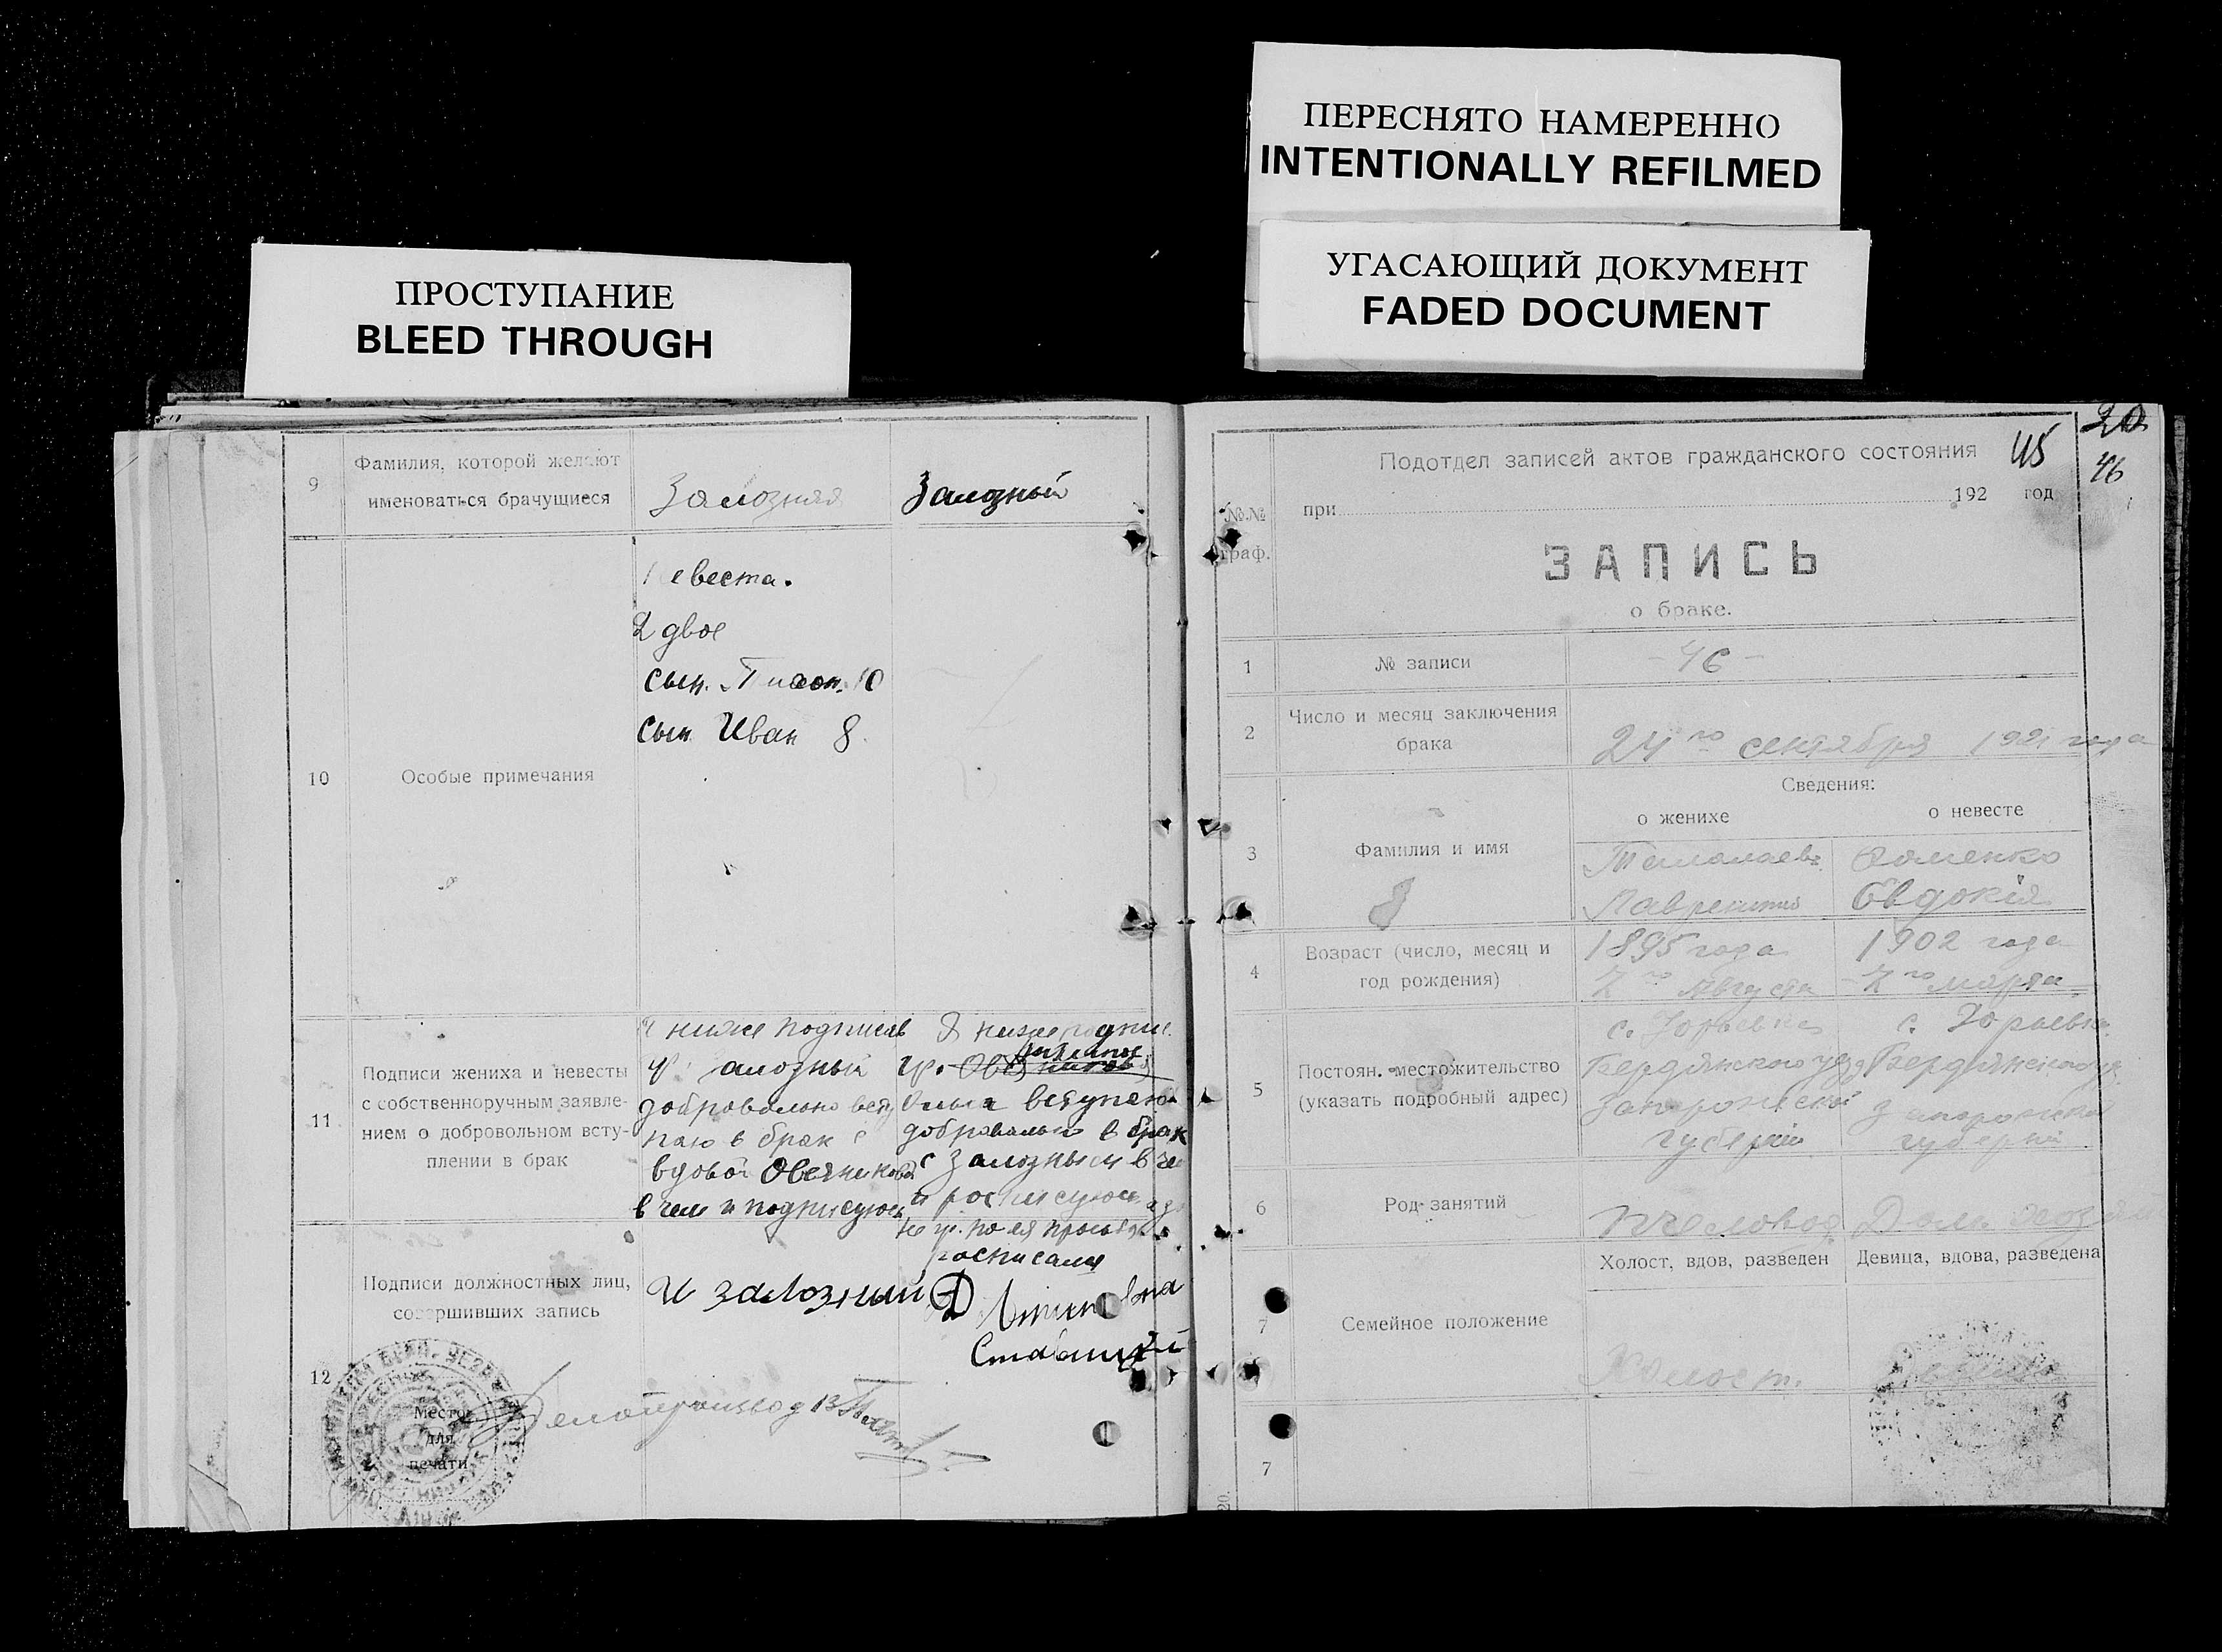 ПЕРЕСНЯТО НАМЕРЕННО
INTENTIONALLY REFILMED
УГАСАЮЩИЙ ДОКУМЕНТ
FADED DOCUMENT
ПРОСТУПАНИЕ
BLEED THROUGH
9
Фамилия, которой желают
именоваться брачущиеся
Залозная
Залозный
10
Особые примечания
невеста.
2 двое
сын. 10
сын Иван 8
11
Подписи жениха и невесты
с собственноручным заявле-
нием о добровольном всту-
плении в брак
Я ниже подписав
Залозный
добровольно всту
паю в брак с
вдовой Овечниковой
в чем и подписуюсь
Я ниже подпис
гр.
Ольга вступаю
добровольно в брак
с Залозным в че
и росписуюсь
не гр. по ея просьбе
росписался
12
Подписи должностных лиц,
совершивших запись
И Залозний
Место
для
печати
Делопроизвод
20
45
46
Подотдел записей актов гражданского состояния
при 192 год
№.№
граф.
ЗАПИСЬ
о браке.
1
№ записи
- 46 -
2
Число и месяц заключения
брака
24го сентября 1921 года
Сведения:
о женихе
о невесте
3
Фамилия и имя
Лаврентий
Фоменко
Евдокія
4
Возраст (число, месяц и
год рождения)
1895 года
Августа
1902 года
марта
5
Постоян. местожительство
(указать подробный адрес)
с. Юрьевка
Бердянского уезд
Запорожской
губернии
с. Юрьевка
Бердянского у
Запорожской
губернии
6
Род занятий
пчеловод
Дом. хозяй
7
Семейное положение
Холост, вдов, разведен
Девица, вдова, разведена
Холост.
девица
7
20.